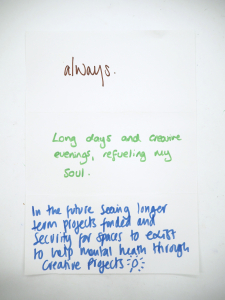 always.
Long days and creative
evenings, refueling my
soul.
In the future seeing longer
term projects funded and
security for spaces to exist
to help mental heath through
Creative Projects